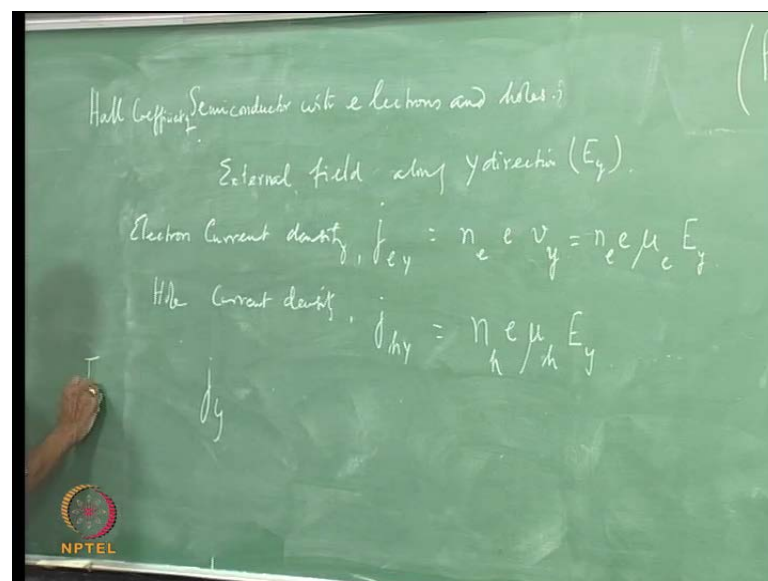 Hall Coefficient, Semiconductor with electrons and holes:
External field along y direction (E_y).
Electron Current density, j_ey = n_e e v_y = n_e e μ_e E_y
Hole Current density, j_hy = n_h e μ_h E_y
j_y
NPTEL